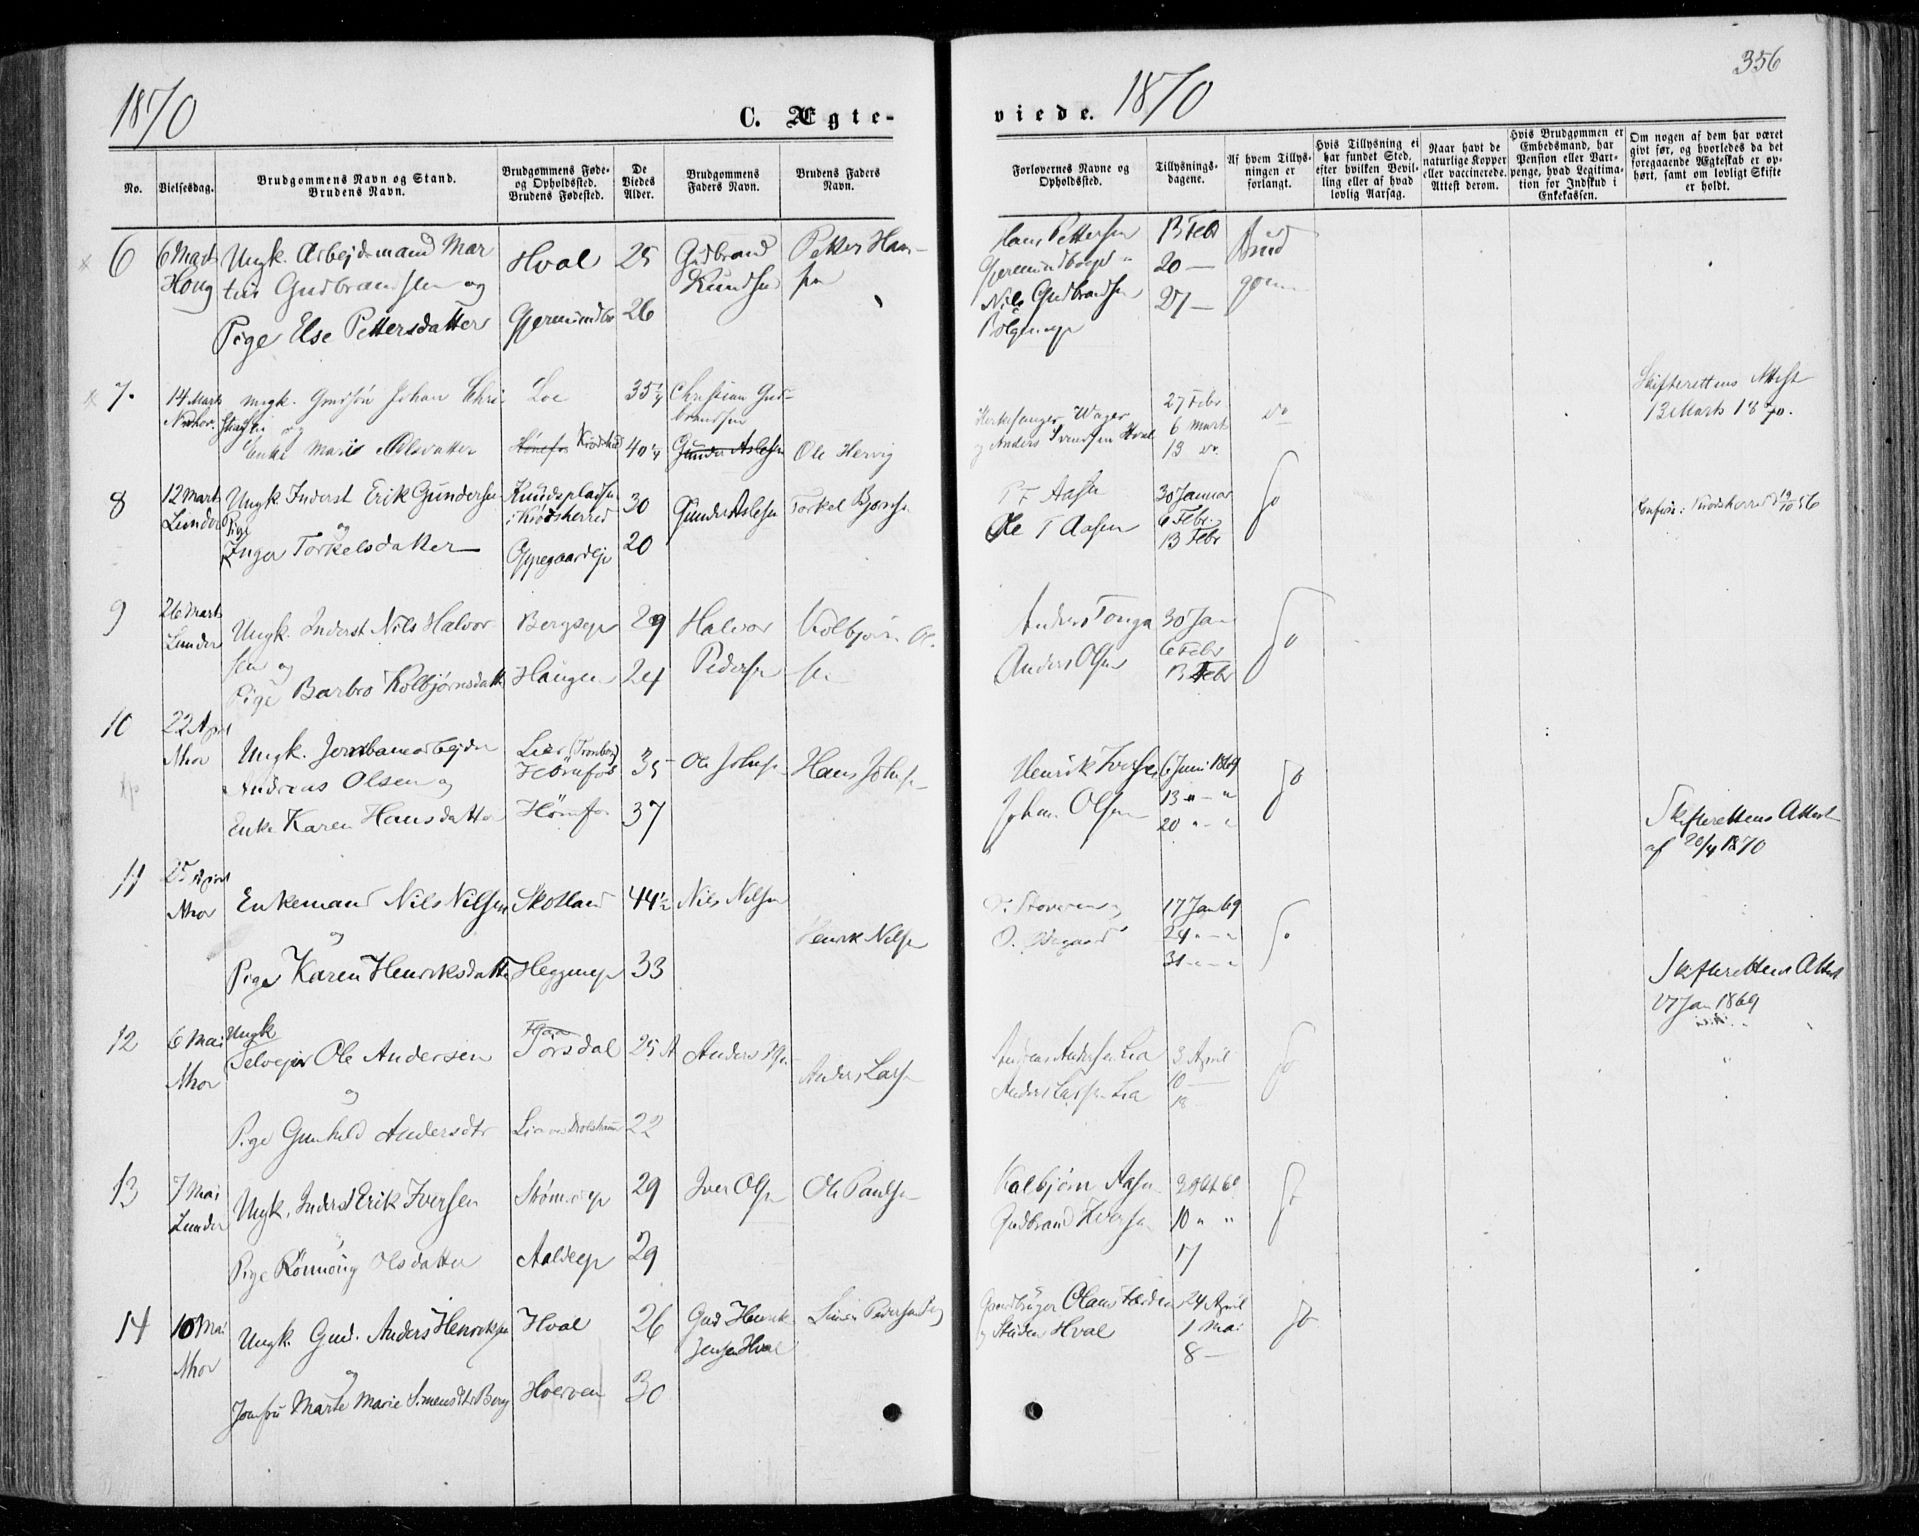 1870
C. Ægte-
No.
Vielsesdag.
Brudgommens Navn og Stand.
Brudens Navn.
Brudgommens Føde-
og Opholdssted.
Brudens Fødested.
De
Viedes
Alder.
Brudgommens
Faders Navn.
Brudens Faders
Navn.
6
6 Mart
Houg
Ungk. Arbejdsmand Mar
tin Gudbrandsen og
Pige Else Pettersdatter
Hval
Gjermundbo
25
26
Gudbrand
Knudsen
Petter Han-
sen
7.
14 Marts
Ungk. Johan Chri
og
Enke Marie Olsdatter
Loe
Hønefos Krødshrd
35 1/4
40 1/4
Christian Gud-
brandsen
Gunder Aslesen
Ole Hervig
8
12 Mart
Lunder
Ungk. Inderst Erik Gundersen
og
Pige
Inger Torkelsdatter
Knudspladsen
i Krødsherred
Oppegaardejr
30
20
Gunder Aslesen
Torkel Bjørnsen
9
26 Mart
Lunder
Ungk. Inderst Nils Halvor-
sen og
Pige Barbro Kolbjørnsdatter
Bergseje
Haugen
29
24
Halvor
Pedersen
Kolbjørn Ol-
sen
10
22 April
Nhov
Ungk. Jernbanearbejder
Andreas Olsen og
Enke Karen Hansdatter
Lier (Tronberg)
Hønefos
Hønefos
35
37
Ole Johnsen
Hans Johnsen
11
25 April
Nhov
Enkemand Nils Nilsen
og
Pige Karen Henriksdatter
Skotland
Heggeneje
44 1/2
33
Nils Nilsen
Henrik Nilsen
12
6 Mai
Nhov
Ungk
Selvejer Ole Andersen
og
Pige Gunhild Andersdtr
Torsdal
25
22
Anders
Anders Larsen
13
7 Mai
Lunder
Ungk. Inderst Erik Iversen
og
Pige Rønnoug Olsdatter
Aaldeje
29
29
Iver Olsen
Ole Paulsen
14
10 Mai
Nhov
Ungk. Gud. Anders Henriksen
og
Jomfru Marte Marie Simensdtr Berg
Hval
Hverven
26
30
Gud Henrik
Jensen Hval
Simen Pedersen Berg
356
viede. 1870
Forlovernes Navne og
Opholdssted.
Tillysnings-
dagene.
Af hvem Tillys-
ningen er
forlangt.
Hvis Tillysning ei
har fundet Sted,
efter hvilken Bevil-
ling eller af hvad
lovlig Aarsag.
Naar havt de
naturlige Kopper
eller vaccinerede.
Attest derom.
Hvis Brudgommen er
Embedsmand, har
Pension eller Vart-
penge, hvad Legitima-
tion for Indskud i
Enkekassen.
Om nogen af dem har været
givt før, og hvorledes da det
foregaaende Ægteskab er op-
hørt, samt om lovligt Skifte
er holdt.
Hans Pettersen
Gjermundboejet
Nils Gudbrandsen
13 Febr
20 —
27 —
Brud
gom
Kirkesanger Wager
og Anders Svendsen Hval
27 Febr
6 Mart
13 do
do
Skifterettens Attest
13 Marts 1870.
T Aasen
Ole T Aasen
30 Januar
6 Febr.
13 Febr
do
Krødsherred 19/10 56
Anders Tonga
Anders Olsen
30 Jan
6 Febr
13 Febr
do
Henrik Iversen
Johan Olsen
6 Juni 1869
13 " — "
20 " — "
do
Skifterettens Attest
af 20/4 1870
17 Jan 69
24 " — "
31 — " — "
do
Skifterettens Attest
27 Jan 1869
Andreas Andersen Lia
Anders Larsen Lia
3 April
10 —
18
do
Kolbjørn Aasen
Gudbrand Iversen
10 " "
17
do
Gaardbruger Olaus Færden
og Steder Hval
24 April
1 Mai
8 —
do